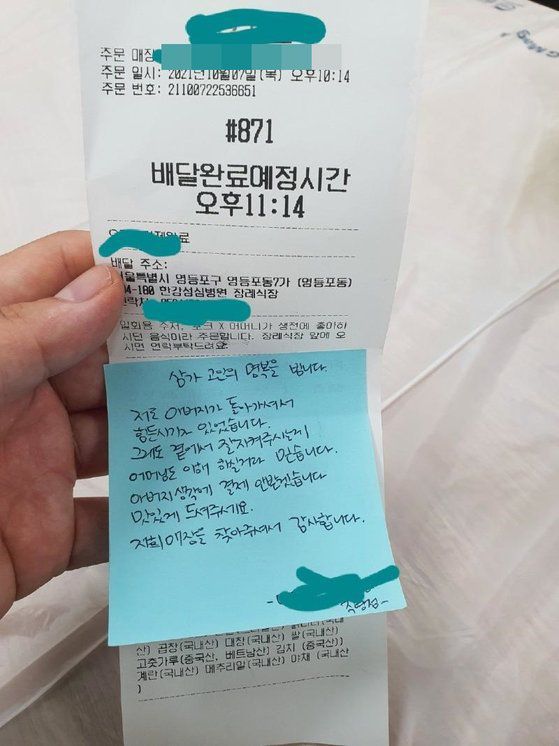 주문 매장
주문 일시: 2021년10월07일(목) 오후10:14
주문 번호: 21100722536651
#871
배달완료예정시간
오후11:14
배달 주소:
서울특별시 영등포구 영등포동7가 (영등포동)
94-100 한강성심병원 장례식장
연락처
일회용 수저, 포크 X 어머니가 생전에 좋아하
시던 음식이라 주문합니다. 장례식장 앞에 오
시면 연락부탁드려요.
삼가 고인의 명복을 빕니다.
저도 아버지가 돌아가셔서
힘든시기가 있었습니다.
그래도 곁에서 잘지켜주시는게
어머님도 이해 하실거라 믿습니다.
아버지생각에 결제 안받겠습니다
맛있게 드셔주세요.
저희매장을 찾아주셔서 감사합니다.
산) 곱창(국내산) 대창(국내산) 쌀(국내산)
고춧가루(중국산, 베트남산) 김치 (중국산))
계란(국내산) 메추리알(국내산) 야채 (국내산
)